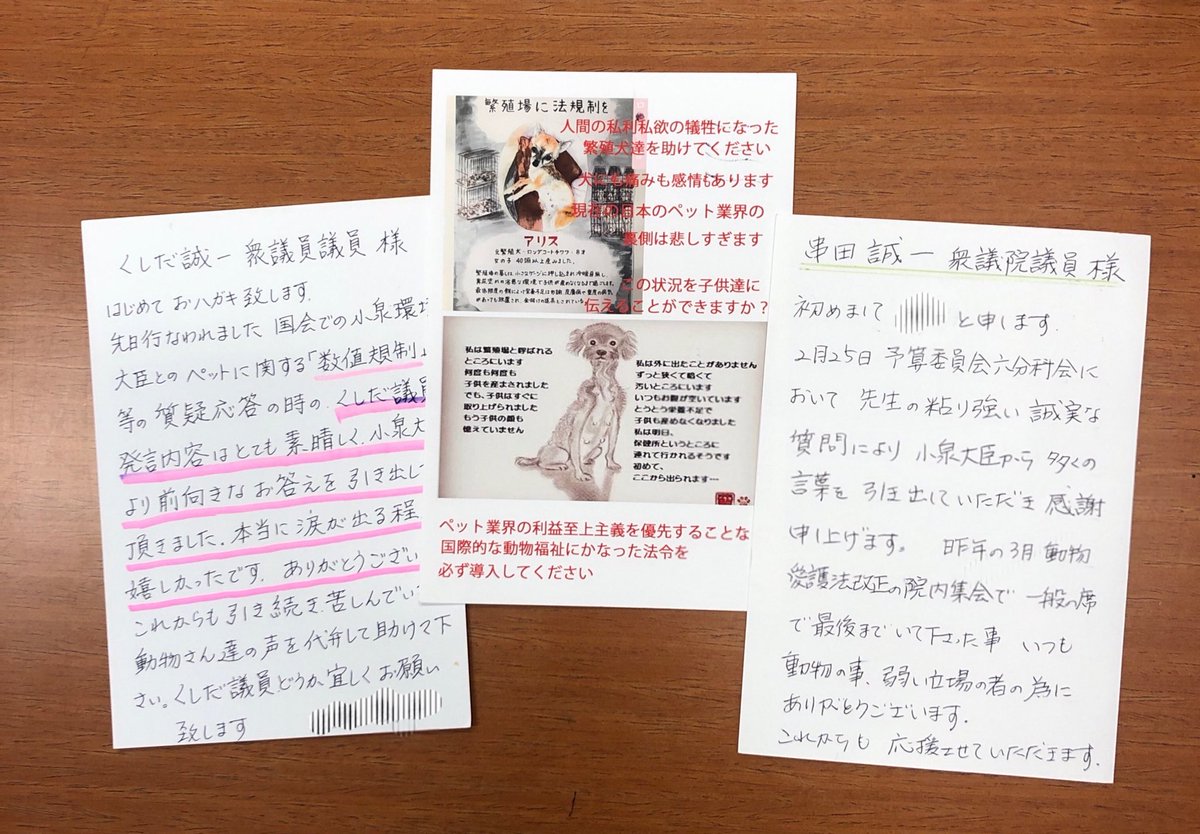 くしだ誠一 衆議員議員 様
はじめて おハガキ致します.
先日行なわれました 国会での小泉環
大臣とのペットに関する「数値規制」
等の質疑応答の時の. くしだ議員
発言内容はとても素晴しく. 小泉大
より前向きなお答えを引き出し
頂きました. 本当に涙が出る程
嬉しかったです. ありがとうござい
これからも引き続き苦しんでい
動物さん達の声を代弁して助けて下
さい。くしだ議員どうか宜しくお願い
致します
繁殖場に法規制を
人間の私利私欲の犠牲になった
繁殖犬達を助けてください
犬にも痛みも感情もあります
現在の日本のペット業界の
裏側は悲しすぎます
アリス
元繁殖犬・ロングコートチワワ・
女の子 40頭以上産みました。
この状況を子供達に
伝えることができますか？
私は繁殖場と呼ばれる
ところにいます
何度も何度も
子供を産まされました
でも、子供はすぐに
取り上げられました
もう子供の顔も
憶えていません
私は外に出たことがありません
ずっと狭くて暗くて
汚いところにいます
いつもお腹が空いています
とうとう栄養不足で
子供も産めなくなりました
私は明日、
保健所というところに
連れて行かれるそうです
初めて、
ここから出られます…
ペット業界の利益至上主義を優先することな
国際的な動物福祉にかなった法令を
必ず導入してください
串田誠一 衆議院議員 様
初めまして と申します.
2月25日 予算委員会六分科会に
おいて 先生の粘り強い 誠実な
質問により 小泉大臣から 多くの
言葉を 引き出していただき 感謝
申し上げます。 昨年の3月 動物
愛護法改正の院内集会で 一般の席
で最後までいて下さった事 いつも
動物の事、弱い立場の者の為に
ありがとうございます.
これからも 応援させていただきます.